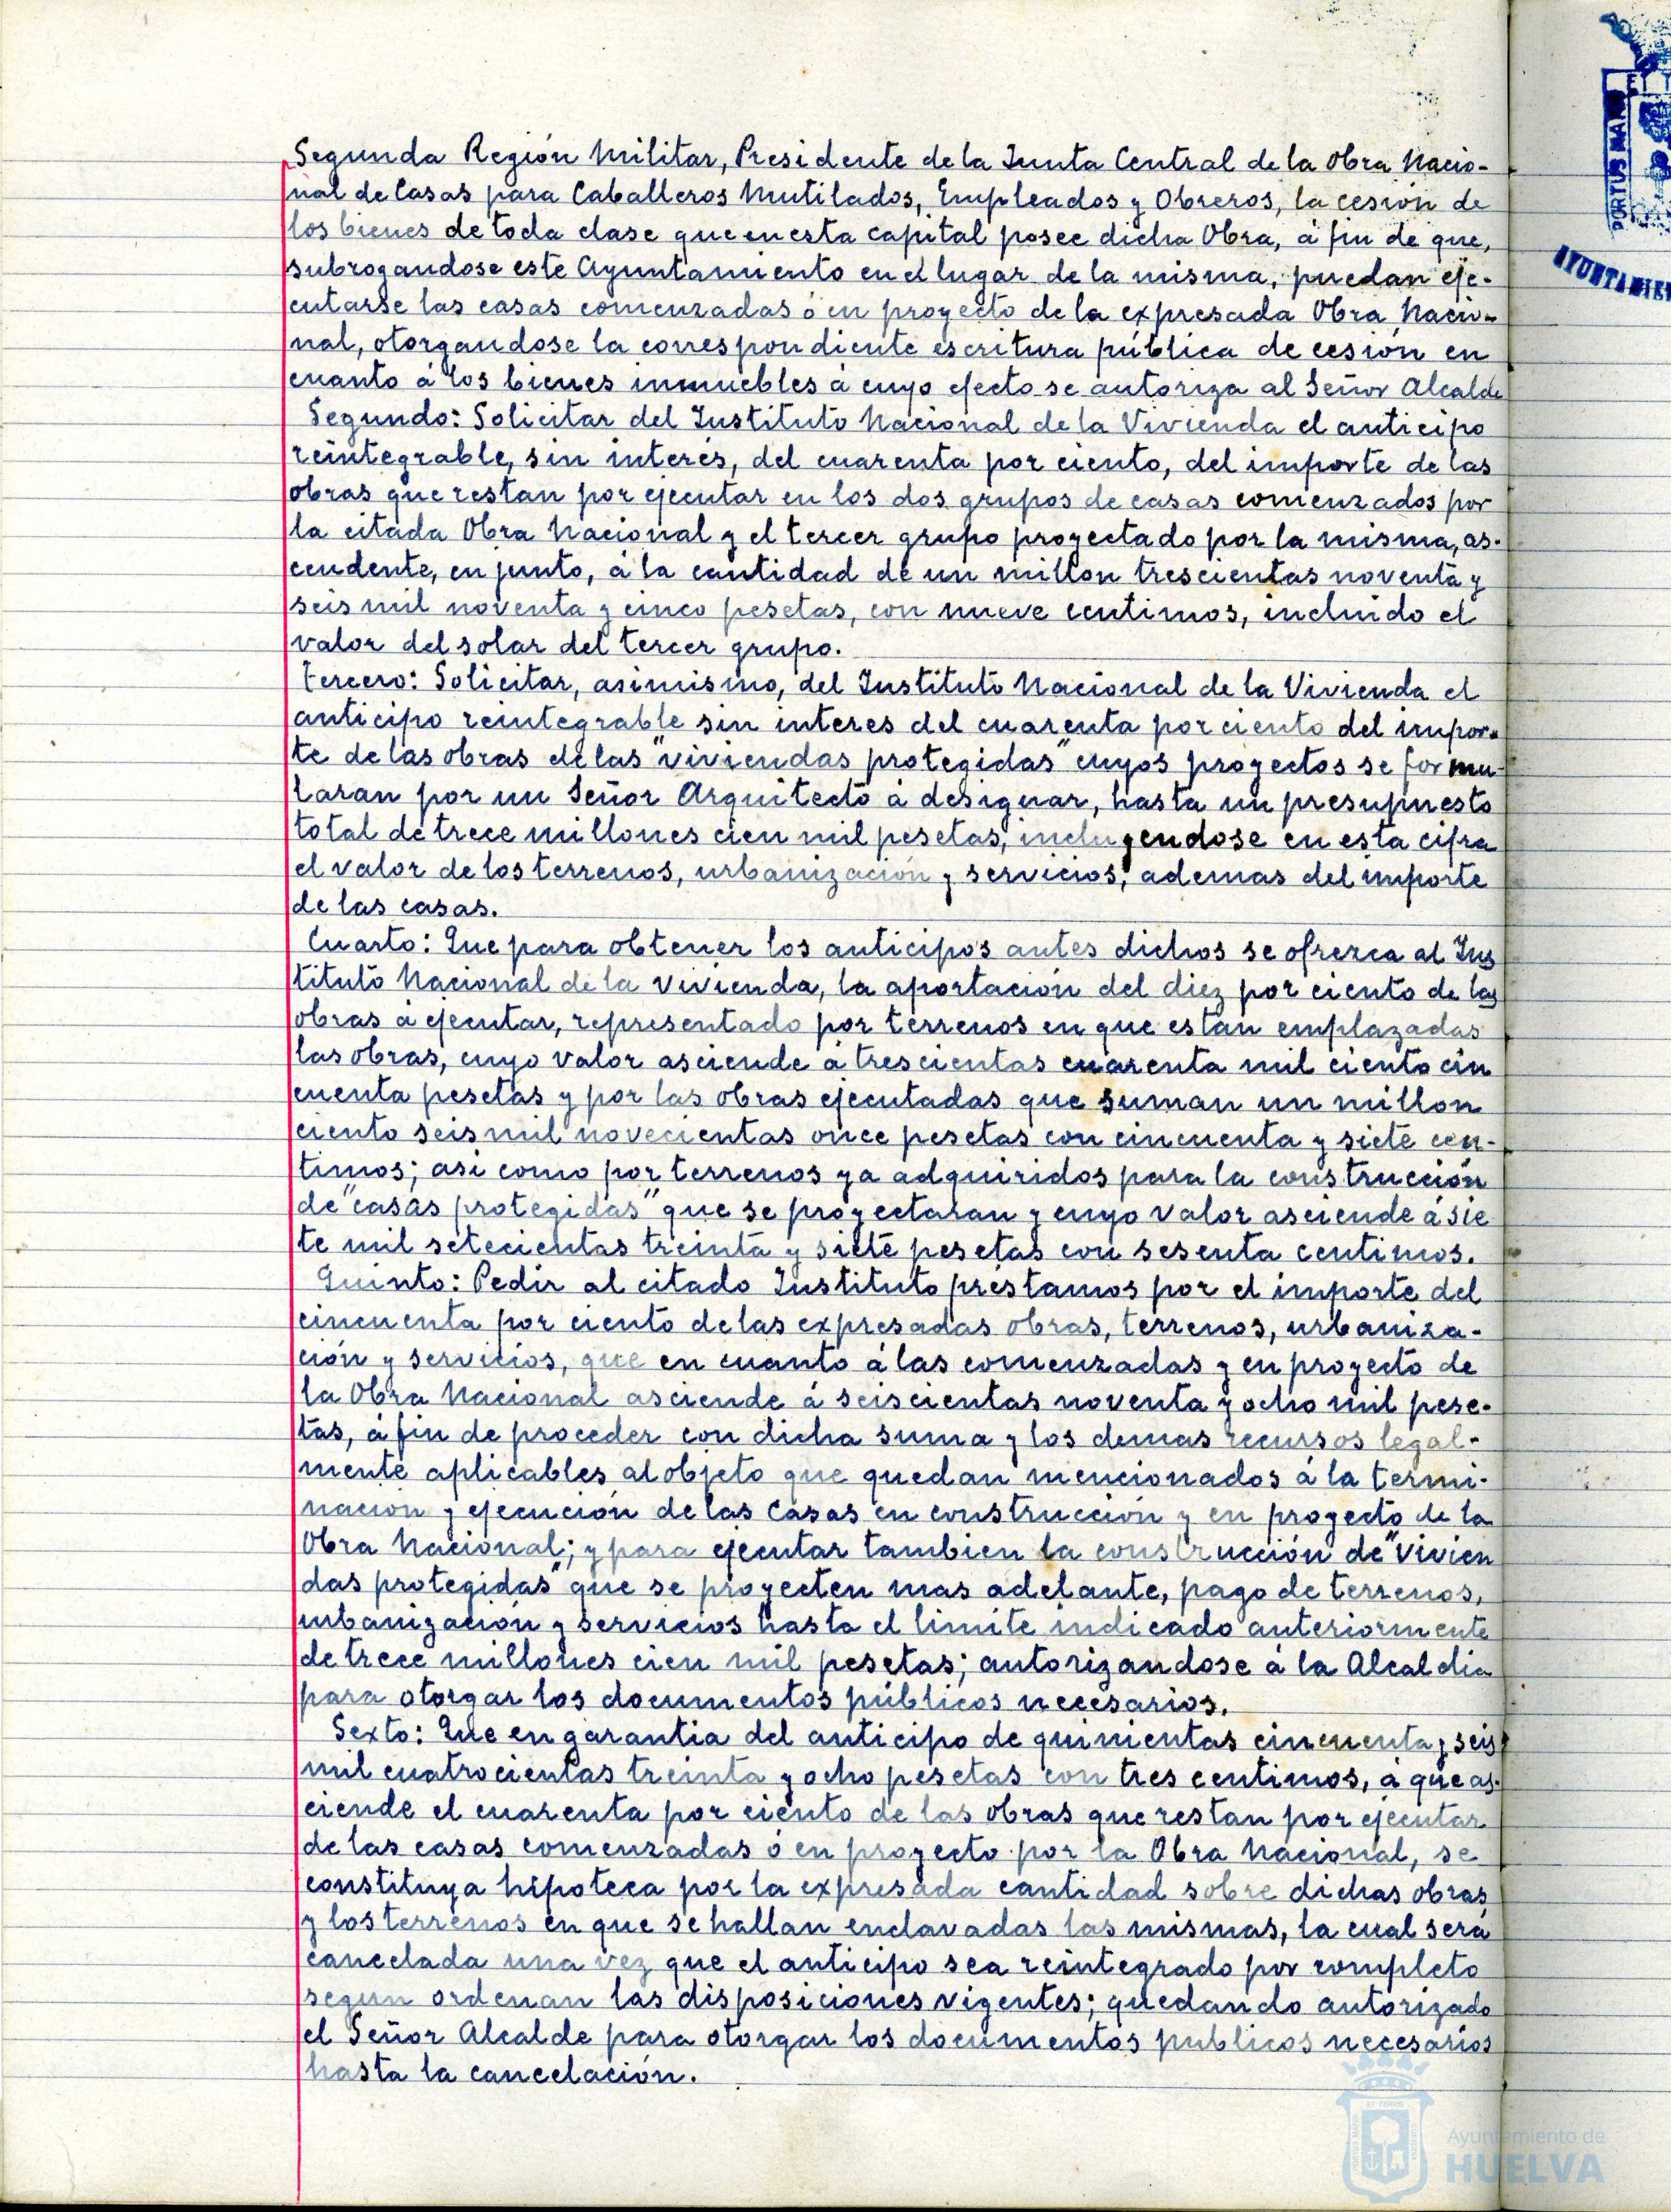 Segunda Región Militar, Presidente de la Junta Central de la Obra Nacio-
nal de Casas para Caballeros Mutilados, Empleados y Obreros, la cesión de
los bienes de toda clase que en esta capital posee dicha Obra, á fin de que,
subrogandose este Ayuntamiento en el lugar de la misma, puedan eje-
cutarse las casas comenzadas ó en proyecto de la expresada Obra Nacio-
nal, otorgandose la correspondiente escritura pública de cesión en
cuanto á los bienes inmuebles á cuyo efecto se autoriza al Señor Alcalde
Segundo: Solicitar del Instituto Nacional de la Vivienda el anticipo
reintegrable, sin interés, del cuarenta por ciento, del importe de las
obras que restan por ejecutar en los dos grupos de casas comenzados por
la citada Obra Nacional y el tercer grupo proyectado por la misma, as-
cendente, en junto, á la cantidad de un millon trescientas noventa y
seis mil noventa y cinco pesetas, con nueve centimos, incluido el
valor del solar del tercer grupo.
Tercero: Solicitar, asimismo, del Instituto Nacional de la Vivienda el
anticipo reintegrable sin interes del cuarenta por ciento del impor-
te de las obras de las "viviendas protegidas" cuyos proyectos se formu-
laran por un Señor Arquitecto á designar, hasta un presupuesto
total de trece millones cien mil pesetas, incluyendose en esta cifra
el valor de los terrenos, urbanización y servicios, ademas del importe
de las casas.
Cuarto: Que para obtener los anticipos antes dichos se ofrezca al Ins
tituto Nacional de la Vivienda, la aportación del diez por ciento de las
obras á ejecutar, representado por terrenos en que están emplazadas
las obras, cuyo valor asciende á trescientas cuarenta mil ciento cin
cuenta pesetas y por las obras ejecutadas que suman un millon
ciento seis mil novecientas once pesetas con cincuenta y siete cen-
timos; asi como por terrenos ya adquiridos para la construcción
de "casas protegidas" que se proyectaran y cuyo valor asciende á sie
te mil setecientas treinta y siete pesetas con sesenta centimos.
Quinto: Pedir al citado Instituto préstamos por el importe del
cincuenta por ciento de las expresadas obras, terrenos, urbaniza-
ción y servicios, que en cuanto á las comenzadas y en proyecto de
la Obra Nacional asciende á seiscientas noventa y ocho mil pese-
tas, á fin de proceder con dicha suma y los demas recursos legal-
mente aplicables al objeto que quedan mencionados á la termi-
nación y ejecución de las Casas en construcción y en proyecto de la
Obra Nacional; y para ejecutar tambien la construcción de "vivien
das protegidas" que se proyecten mas adelante, pago de terrenos,
urbanización y servicios hasta el limite indicado anteriormente
de trece millones cien mil pesetas; autorizandose á la Alcaldia
para otorgar los documentos públicos necesarios.
Sexto: Que en garantia del anticipo de quinientas cincuenta y seis
mil cuatrocientas treinta y ocho pesetas con tres centimos, á que as-
ciende el cuarenta por ciento de las obras que restan por ejecutar
de las casas comenzadas ó en proyecto por la Obra Nacional, se
constituya hipoteca por la expresada cantidad sobre dichas obras
y los terrenos en que se hallan enclavadas las mismas, la cual será
cancelada una vez que el anticipo sea reintegrado por completo
segun ordenan las disposiciones vigentes; quedando autorizado
el Señor Alcalde para otorgar los documentos publicos necesarios
hasta la cancelación.
PORTUS MARIS
Ayuntamiento de
HUELVA